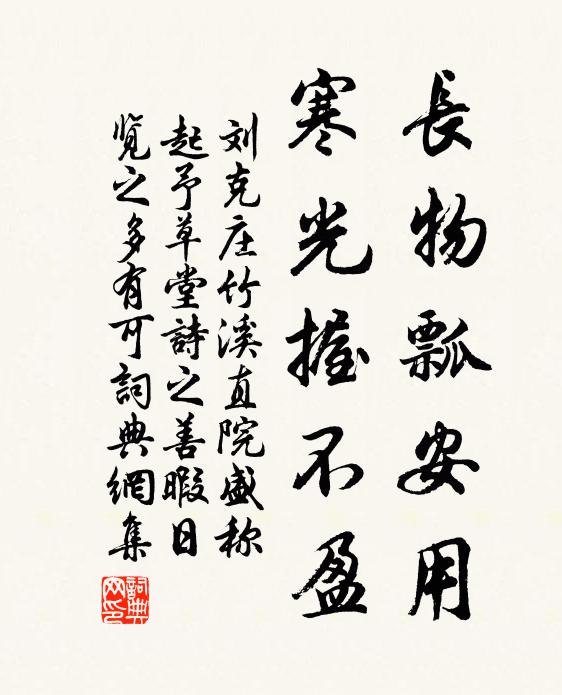 長物瓢安用
寒光握不盈
刘克庄竹溪直院盛称
起予草堂詩之善暇日
覽之多有可詞典網集
詞典
网印